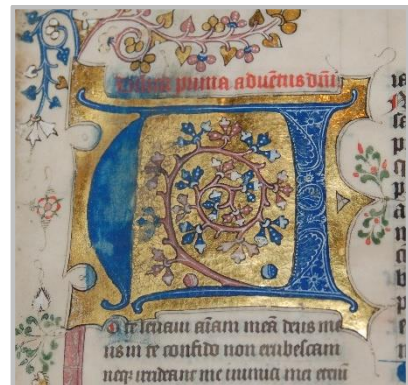 prima aduētus dñi
A
D te leuaui aīam meā deus me
us in te confido non erubescam
neqꝫ irrideant me inimici mei etenī